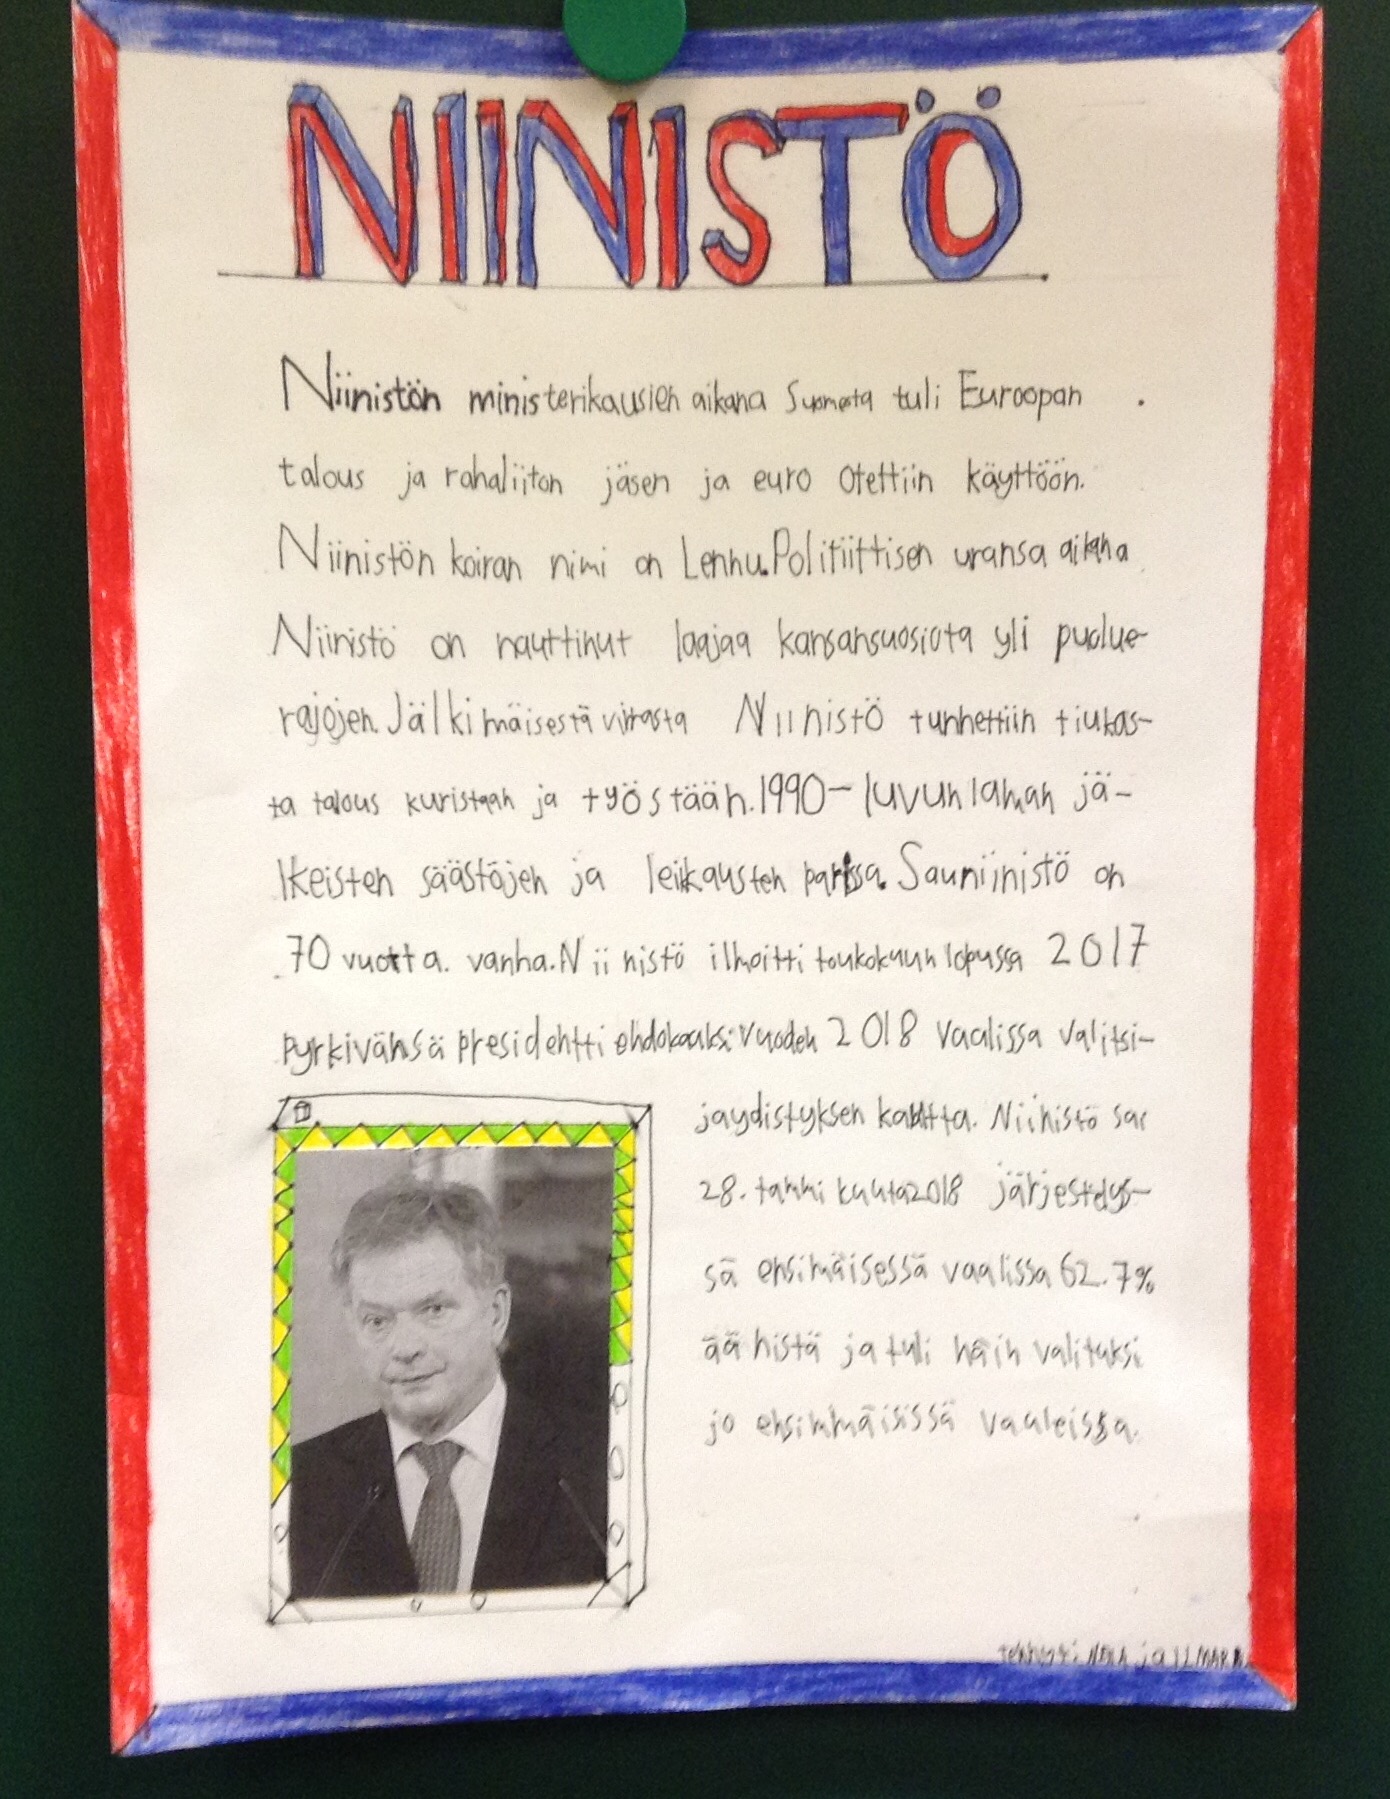 NIINISTÖ
Niinistön ministerikausien aikana Suomesta tuli Euroopan
talous ja rahaliiton jäsen ja euro otettiin käyttöön.
Niinistön koiran nimi on Lennu. Politiittisen uransa aikana
Niinistö on nauttinut laajaa kansansuosiota yli puolue-
rajojen. Jälkimäisestä virrasta Niinistö tunnettiin tiukas-
ta talous kuristaan ja työstään. 1990-luvun laman jä-
lkeisten säästöjen ja leikausten parissa. Sauniinistö on
70 vuotta. vanha. Niinistö ilmoitti toukokuun lopussa 2017
pyrkivänsä presidentti ehdokaaksi vuoden 2018 vaalissa valitsi-
jaydistyksen kautta. Niinistö sai
28. tammikuuta 2018 järjestetys-
sä ensimäisessä vaalissa 62.7%
äänistä ja tuli näin valituksi
jo ensimmäisissä vaaleissa.
ja ILMARI